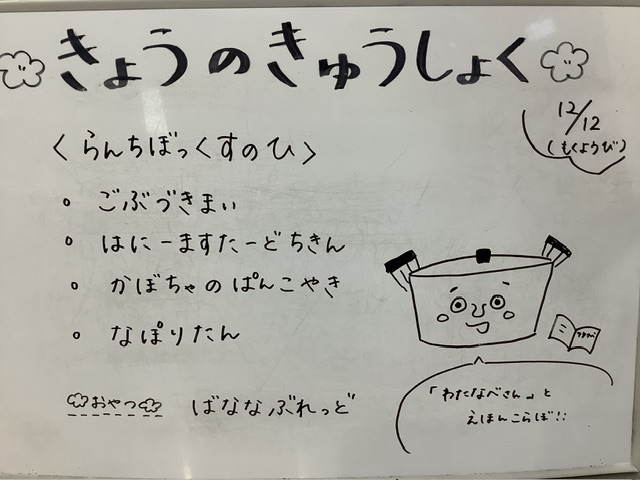 きょうのきゅうしょく
12/12
(もくようび)
〈らんちぼっくすのひ〉
。ごぶづきまい
。はにーますたーどちきん
。かぼちゃのぱんこやき
。なぽりたん
おやつ ばななぶれっど
「わたなべさん」と
えほんこらぼ!!